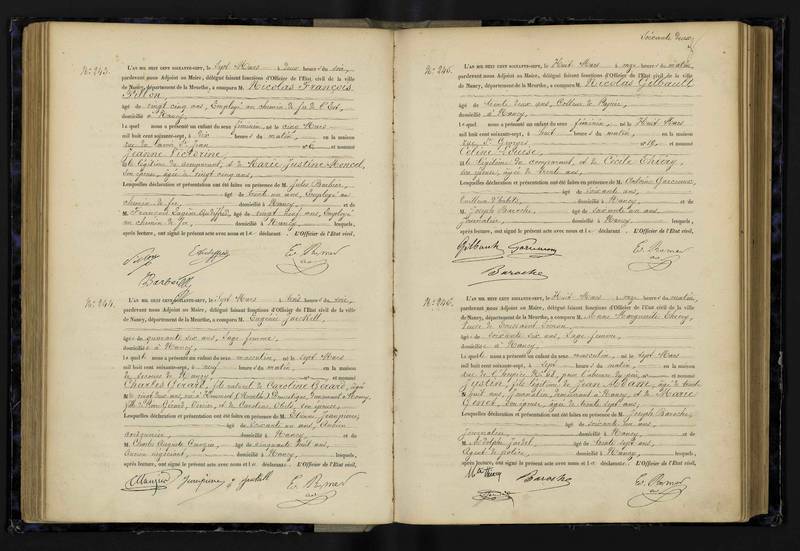 N.° 243.
L'AN MIL HUIT CENT SOIXANTE-SEPT, le Sept Mars à deux heures du soir,
pardevant nous Adjoint au Maire, délégué faisant fonctions d'Officier de l'Etat civil de la ville
de Nancy, département de la Meurthe, a comparu M. Nicolas François
âgé de vingt cinq ans, Employé au chemin de fer de l'Est,
domicilié à Nancy
Lequel nous a présenté un enfant du sexe féminin, né le cinq Mars
mil huit cent soixante-sept, à dix heures du matin, en la maison
rue du faub. St Jean n° 6 et nommé
Jeanne Victorine,
fille légitime du comparant, et de Marie Justine
son épouse, âgée de vingt cinq ans,
Lesquelles déclaration et présentation ont été faites en présence de M. Jules Barbier,
âgé de trente un ans, Employé au
chemin de fer, domicilié à Nancy et de
M. François Eugène âgé de vingt neuf ans, Employé
au chemin de fer, domicilié à Nancy lesquels,
après lecture, ont signé le présent acte avec nous et le déclarant. L'Officier de l'Etat civil,
N.° 244.
L'AN MIL HUIT CENT SOIXANTE-SEPT, le Sept Mars à trois heures du soir,
pardevant nous Adjoint au Maire, délégué faisant fonctions d'Officier de l'Etat civil de la ville
de Nancy, département de la Meurthe, a comparu M. Eugénie
âgée de quarante six ans, Sage femme,
domiciliée à Nancy
Laquelle nous a présenté un enfant du sexe masculin, né le sept Mars
mil huit cent soixante-sept, à neuf heures du matin, en la maison
de secours de Nancy et nommé
Charles Gérard, fils naturel de Caroline Gérard, âgée
de vingt deux ans, domestique, demeurant à Nancy,
Lesquelles déclaration et présentation ont été faites en présence de M. Etienne
âgé de soixante un ans, Ancien
domicilié à Nancy et de
M. Charles Auguste âgé de cinquante huit ans,
Ancien négociant domicilié à Nancy, lesquels,
après lecture, ont signé le présent acte avec nous et la déclarante. L'Officier de l'Etat civil,
Soixante deux
N.° 245.
L'AN MIL HUIT CENT SOIXANTE-SEPT, le Huit Mars à onze heures du matin,
pardevant nous Adjoint au Maire, délégué faisant fonctions d'Officier de l'Etat civil de la ville
de Nancy, département de la Meurthe, a comparu M. Nicolas Gilbault
âgé de trente deux ans, Colleur de Papier,
domicilié à Nancy
Lequel nous a présenté un enfant du sexe féminin, né le Huit Mars
mil huit cent soixante-sept, à huit heures du matin, en la maison
rue St Georges n° 19, et nommé
Céline Louise,
fille légitime du comparant, et de Cécile Thiéry,
son épouse, âgée de trente ans,
Lesquelles déclaration et présentation ont été faites en présence de M. Antoine
âgé de soixante ans,
Tailleur d'habits domicilié à Nancy et de
M. Joseph Baroche, âgé de soixante un ans
Journalier, domicilié à Nancy lesquels,
après lecture, ont signé le présent acte avec nous et le déclarant. L'Officier de l'Etat civil,
Baroche
N.° 246.
L'AN MIL HUIT CENT SOIXANTE-SEPT, le Huit Mars à onze heures du matin,
pardevant nous Adjoint au Maire, délégué faisant fonctions d'Officier de l'Etat civil de la ville
de Nancy, département de la Meurthe, a comparu M. Anne Marguerite Thiéry,
Veuve de Toussaint
âgée de soixante six ans, Sage femme,
domiciliée à Nancy
Laquelle nous a présenté un enfant du sexe masculin, né le sept Mars
mil huit cent soixante-sept, à sept heures du matin, en la maison
et nommé
Justin, fils légitime de Jean Adam, âgé de trente
huit ans, Journalier, demeurant à Nancy, et de Marie
son épouse, âgée de trente sept ans,
Lesquelles déclaration et présentation ont été faites en présence de M. Joseph Baroche,
âgé de soixante un ans,
Journalier, domicilié à Nancy et de
M. Adolphe âgé de trente sept ans,
Agent de police, domicilié à Nancy, lesquels,
après lecture, ont signé le présent acte avec nous et la déclarante. L'Officier de l'Etat civil,
Baroche